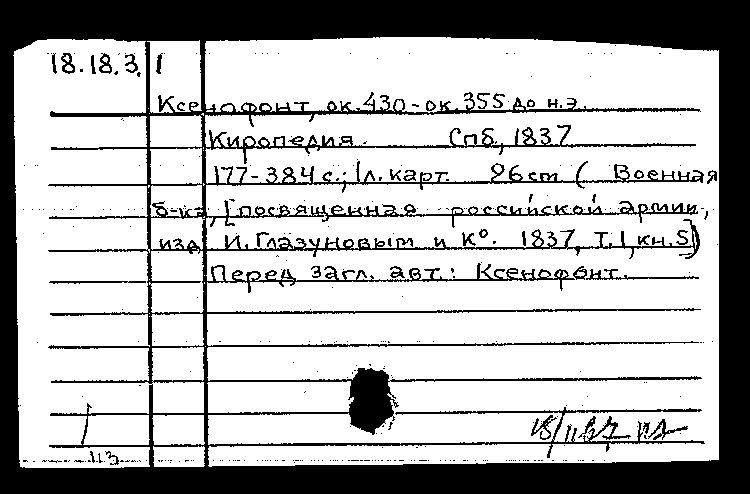 18.18.3. 1
Ксенофонт, ок. 430-ок. 355 до н.э.
Киропедия. Спб., 1837
177-384 с.; 1л. карт. 26cm ( Военная
б-ка, [посвященная российской армии,
изд И. Глазуновым и К°. 1837, Т. 1, кн. 5])
Перед загл. авт.: Ксенофонт.